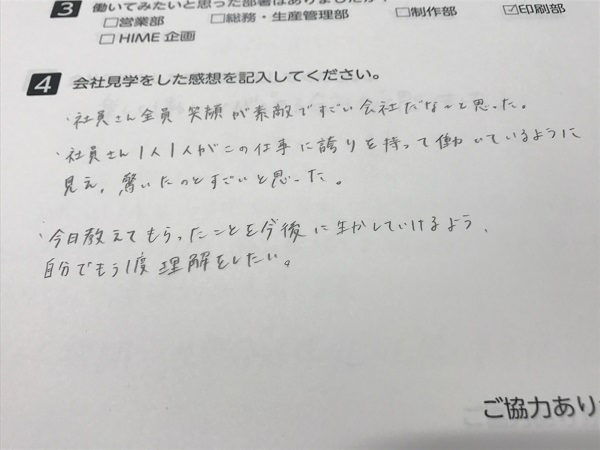 3 働いてみたいと思った部署はありましたか
□営業部 □総務・生産管理部 □制作部 ☑印刷部
□HIME 企画
4 会社見学をした感想を記入してください。
・社員さん全員 笑顔が素敵ですごい会社だなーと思った。
・社員さん1人1人がこの仕事に誇りを持って働いているように
見え、驚いたのとすごいと思った。
・今日教えてもらったことを今後に生かしていけるよう、
自分でもう1度理解をしたい。
ご協力あり